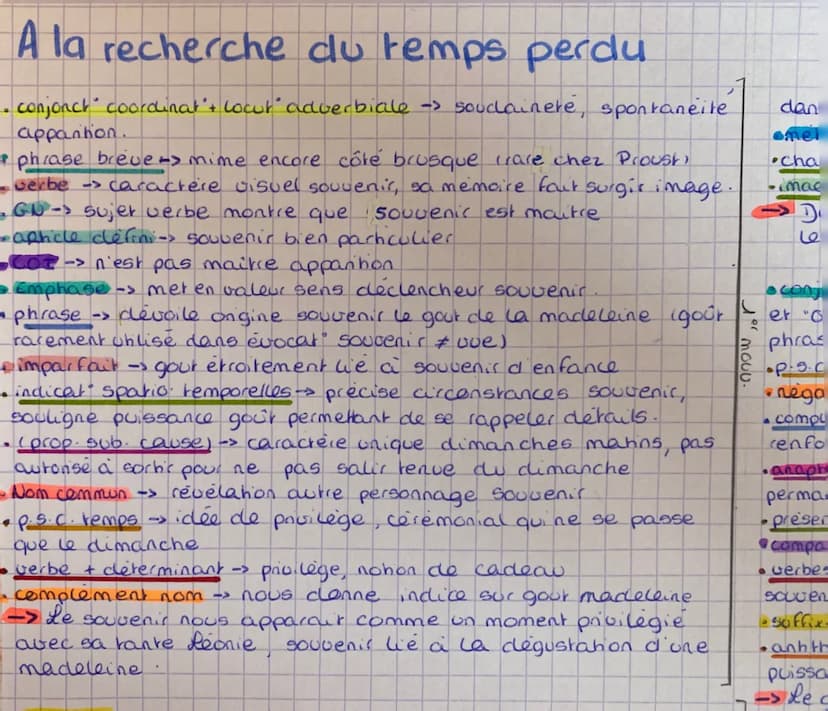 A la recherche du temps perdu
. conjonct° coordinat°+ locut° adverbiale -> soudaineté, spontanéité
apparition.
• phrase brève -> mime encore côté brusque (rare chez Proust)
. verbe -> caractère visuel souvenir, sa mémoire fait surgir image.
. GN -> sujet verbe montre que souvenir est maître
• article défini -> souvenir bien particulier
• COI -> n'est pas maître apparition
• Emphase -> met en valeur sens déclencheur souvenir.
• phrase -> dévoile origine souvenir le gout de la madeleine (goût
rarement utilisé dans évocat° souvenir ≠ vue)
• imparfait -> gout étroitement lié à souvenir d'enfance
• indicat° spatio-temporelles -> précise circonstances souvenir,
souligne puissance goût permettant de se rappeler détails.
• (prop. sub. cause) -> caractère unique dimanches matins, pas
autorisé à sortir pour ne pas salir tenue du dimanche
• Nom commun -> révélation autre personnage souvenir
• p.s.c. temps -> idée de privilège, cérémonial qui ne se passe
que le dimanche
• verbe + déterminant -> privilège, notion de cadeau
. complément nom -> nous donne indice sur gout madeleine
-> Le souvenir nous apparait comme un moment privilégié
avec sa tante Léonie, souvenir lié à la dégustation d'une
madeleine.
1er mouv.
dan
• mét
• cha
• imag
->
Le
• conj
et "o
phras
• p.s.c
• néga
. compl
renfo
. anaph
perma
• présen
• compa
• verbes
souven
• suffix
• antith
puissa
-> Le